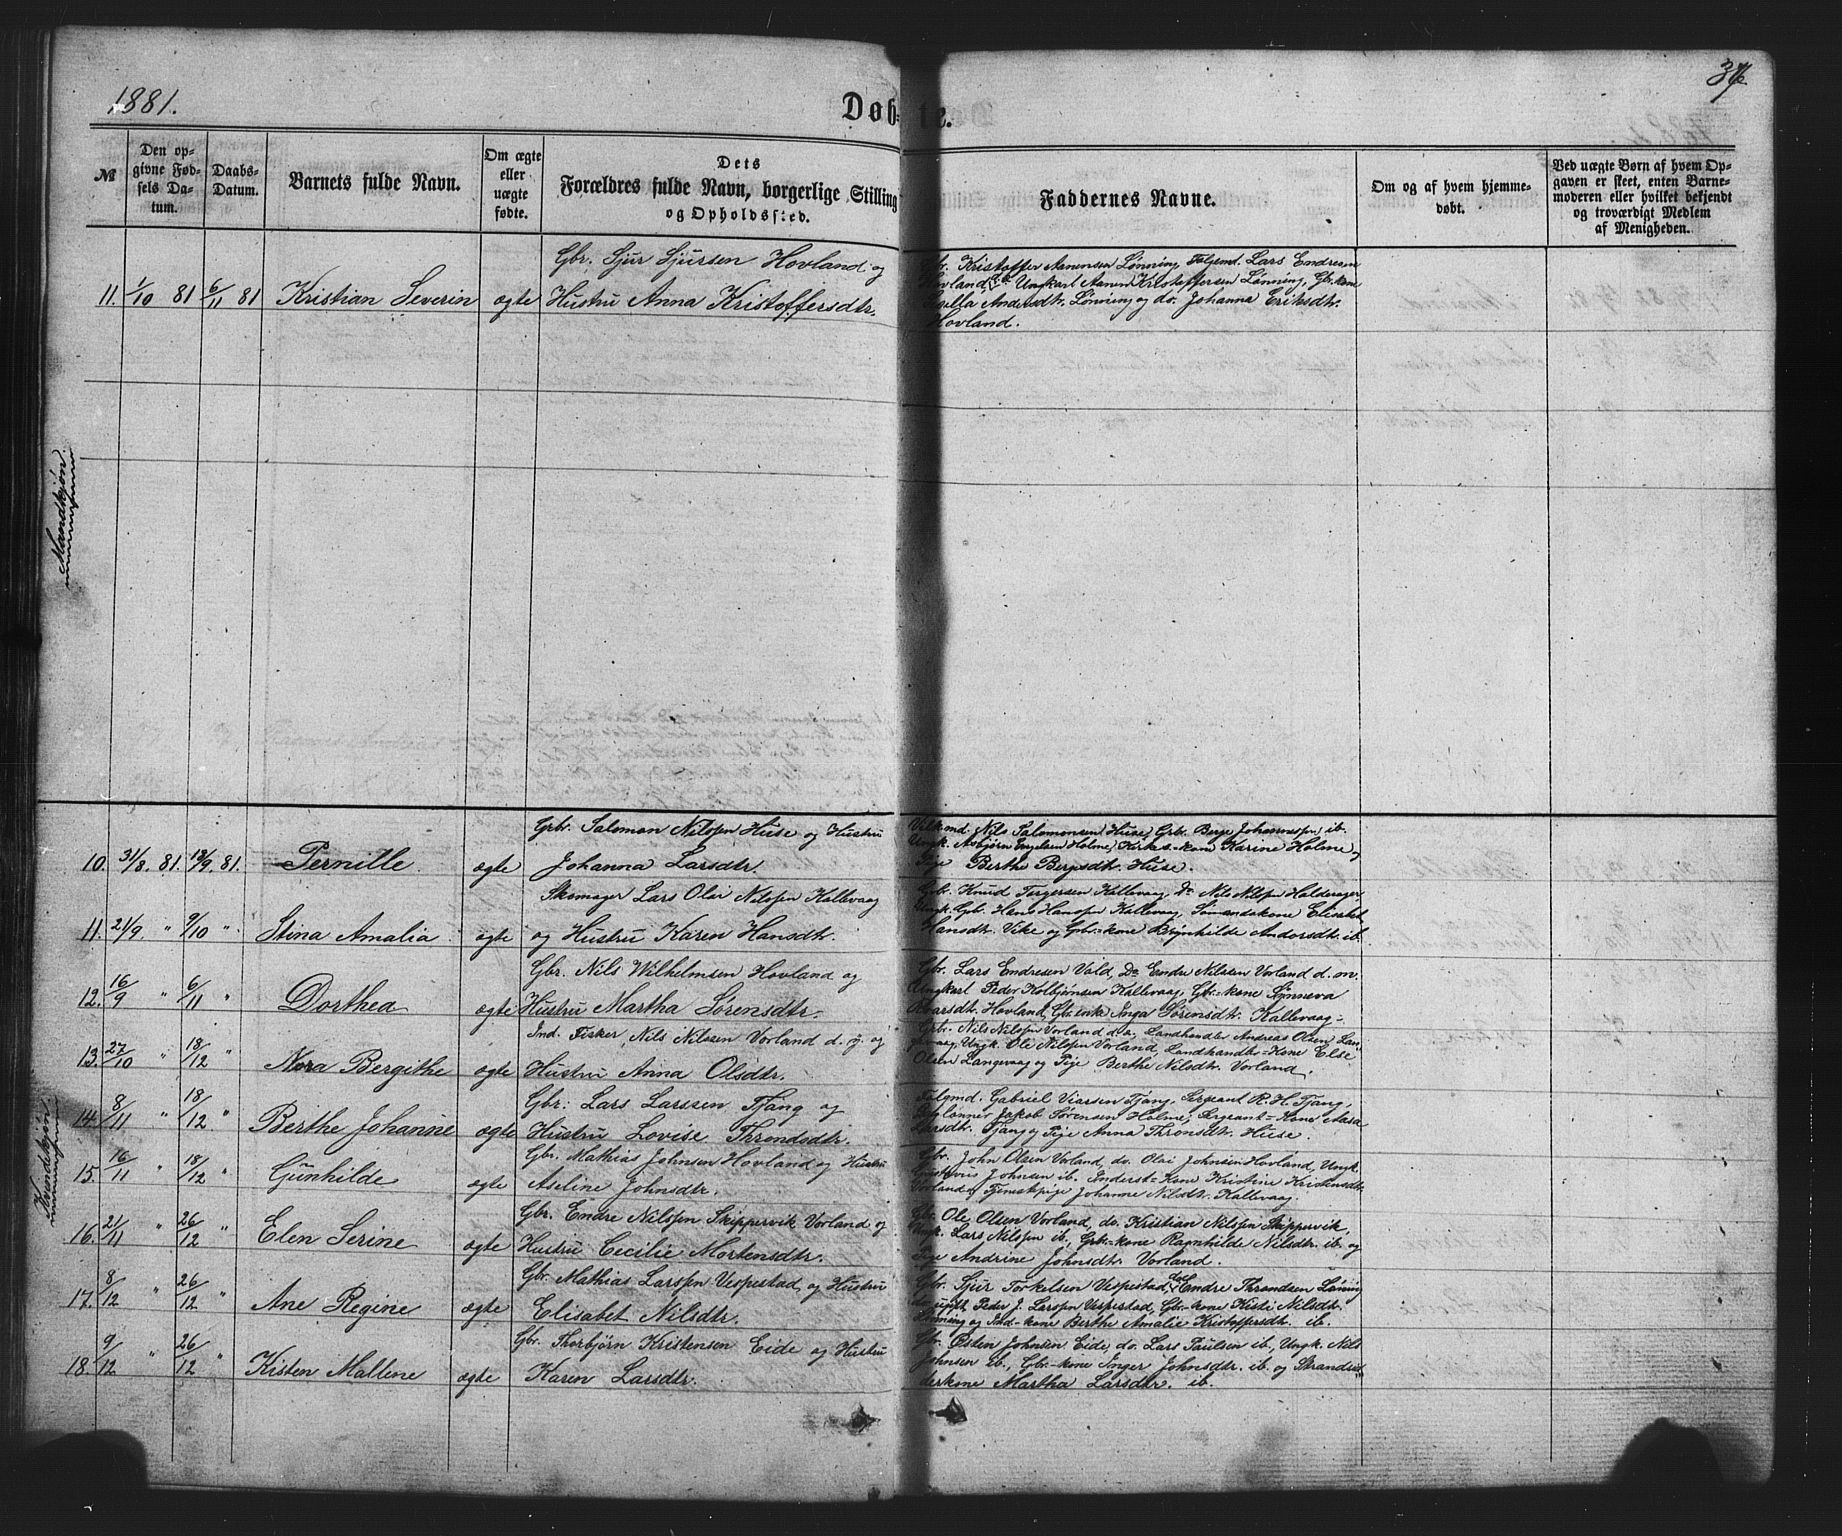 1881.
Døbte.
37
№
Den opgivne Fødsels Datum.
Daabs-Datum.
Barnets fulde Navn.
Om ægte eller uægte fødte.
Dets Forældres fulde Navn, borgerlige Stilling og Opholdssted.
Faddernes Navne.
Om og af hvem hjemmedøbt.
Ved uægte Børn af hvem Opgaven er skeet, enten Barnemoderen eller hvilket bekjendt og troværdigt Medlem af Menigheden.
Mandkjøn.
11. 1/10 81 6/11 81 Kristian Severin ægte
Gbr. Sjur Sjursen Hovland og
Hustru Anna Kristoffersdtr.
Gbr. Kristoffer Aanensen Lønning, Folgemd. Lars Endresen
Hovland, Ungkarl Aanen Kristoffersen Lønning, Gbr.kone
Andrsdtr. Lønning og do. Johanna Eriksdtr.
Hovland.
Kvindekjøn.
10. 31/8 81. 18/9 81. Pernille. ægte
Gbr. Salomon Nilssen Huse og Hustru
Johanna Larsdtr.
Vilkmd. Nils Salomonsen Huse, Gbr. Berge Johannessen ib.
Ungk. Asbjørn Engelsen Holme, Kirkes.-kone Karine Holme og
Pige Berthe Bergsdtr. Huse.
11. 21/9. " 9/10 " Stina Amalia. ægte
Skomager Lars Olai Nilssen Kallevaag
og Hustru Karen Hansdtr.
Gbr. Knud Torgersen Kallevaag, Do Nils Nilssen Halderager
Ungk. Gbr. Hans Hanssen Kallevaag, Sømandskone Elisabet
Hansdtr. Vike og Gbr.-kone Brynhilde Andorsdtr. ib.
12. 16/9 " 6/11 " Dorthea ægte
Gbr. Nils Wilhelmsen Hovland og
Hustru Martha Sørensdtr.
Gbr. Lars Endresen Vald, Do Endre Nilssen Vorland d. m.
Ungkarl Peder Kolbjørnsen Kallevaag, Gbr.-kone Synneva
Ivarsdtr. Hovland, Gbr. enk Inga Sørensdtr. Kallevaag
13. 27/10 " 18/12 " Nora Bergithe ægte
Ind. Fisker Nils Nilssen Vorland d. y. og
Hustru Anna Olsdtr.
Gbr. Nils Nilssen Vorland d. a., Landhandler Andreas Olsen Lan-
gevaag, Ungk. Ole Nilssen Vorland, Landhandler-Kone Else
Olsen Langevaag og Pige Berthe Nilsdtr. Vorland.
14. 8/11 " 18/12. " Berthe Johanne ægte
Gbr: Lars Larssen Tjong og
Hustru Lovise Throndsdtr.
Folgmd. Gabriel Viarsen Tjong, Sergeant R. H. Tjong,
Jakob Sørensen Holme, Sergeant-Kone Aasa
Larsdtr. Tjong og Pige Anna Thronsdtr. Huse.
15. 16/11 " 18/12 " Gunhilde ægte
Gbr. Mathias Johnsen Hovland og Hustru
Aseline Johnsdtr.
Gbr. John Olsen Vorland, do. Olai Johnsen Hovland, Ungk.
Johnsen ib. Inderst-Kone Kristine Kristensdtr.
Vorland og Tjenestpige Johanne Nilsdtr. Kallevaag.
16. 21/11 " 26/12 " Elen Serine ægte
Gbr. Endre Nilssen Skippervik Vorland og
Hustru Cecilie Mortensdtr.
Gbr. Ole Olsen Vorland, do. Kristian Nilssen Skippervik,
Ungk. Lars Nilssen ib. Gbr.-kone Ragnhilde Nilsdtr. ib. og
Pige Andrine Johnsdtr Vorland.
17. 8/12 " 26/12 " Ane Regine ægte
Gbr. Mathias Larssen Vespestad, og Hustru
Elisabet Nilsdtr.
Gbr. Sjur Torkelsen Vespestad, Endre Throndsen Lønning
ugift Peder J. Larssen Vespestad, Gbr.-kone Kisti Nilsdtr.
Lønning og Ind.-kone Berthe Amalie Kristoffersdtr. ib.
18. 9/12 " 26/12 " Kisten Mallene ægte
Gbr. Thorbjørn Kristensen Eide og Hustru
Karen Larsdtr.
Gbr. Østen Johnsen Eide, do. Lars Paulsen ib, Ungk. Nils
Johnsen ib., Gbr.-kone Inger Johnsdtr. ib. og Strandsid-
derkone Martha Larsdtr. ib.